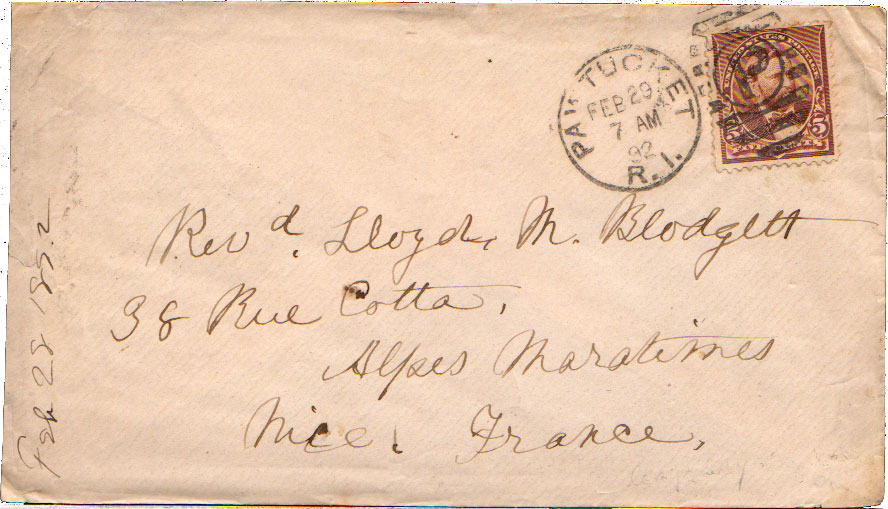 PAWTUCKET
FEB 29
7 AM
92
R.I.
5 5
Revd. Lloyd M. Blodgett
38 Rue Cotta,
Alpes Maratimes
Nice. France,
Feb 28 1892